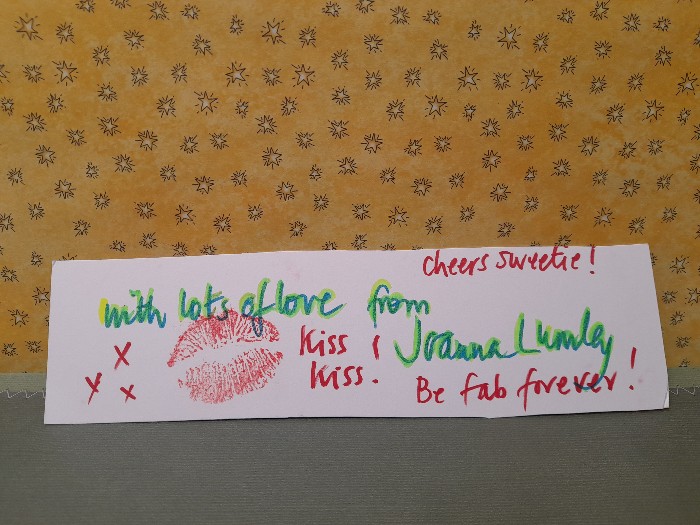 cheers sweetie!
with lots of love from
Joanna Lumley
x
x x
Kiss!
Kiss.
Be fab forever!